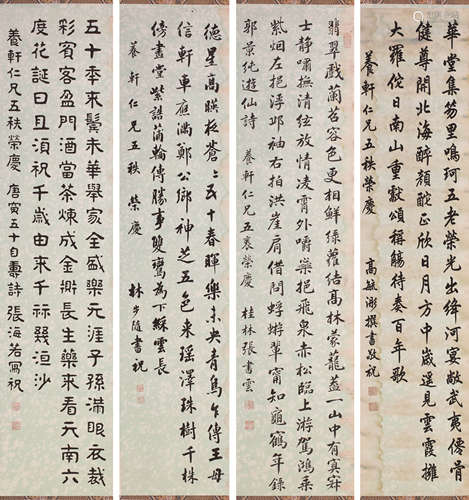 華堂集笏五老榮河宴武夷僊骨
健尊開北海醉顏酡正欣日月方中歲遥見雲霞擁
大羅日南山重獻頌稱觴待奏百年歌
養軒仁兄五秩榮慶 高毓浵撰書敬祝
翡翠戲蘭苕容色更相鮮綠蘿結高林蒙蘢蓋一山中有冥寂
士靜嘯撫清弦放情凌霄外嚼蘂挹飛泉赤松臨上游駕鴻乘
紫烟左挹浮邱袖右拍洪崖肩借問蜉蝣輩甯知龜鶴年錄
郭景純遊仙詩 養軒仁兄五袠榮慶 桂林張書雲
德星高映極蒼蒼五十春暉樂未央青鳥乍傳王母
信軒車應滿鄭公鄉神芝五色來瑶澤珠樹千株
傍畫堂紫誥蒲輪傳勝事雙鸞為下綵雲長
養軒仁兄五秩 榮慶 林步隨書祝
五十年來鬢未華舉家全盛樂元涯子孫滿眼衣裁
彩賓客盈門酒當茶煉成金鼎長生藥來看天南六
度花誕日且須祝千歲由來千祘幾洹沙
養軒仁兄五秩榮慶 唐寅五十自壽詩 張海若寫祝